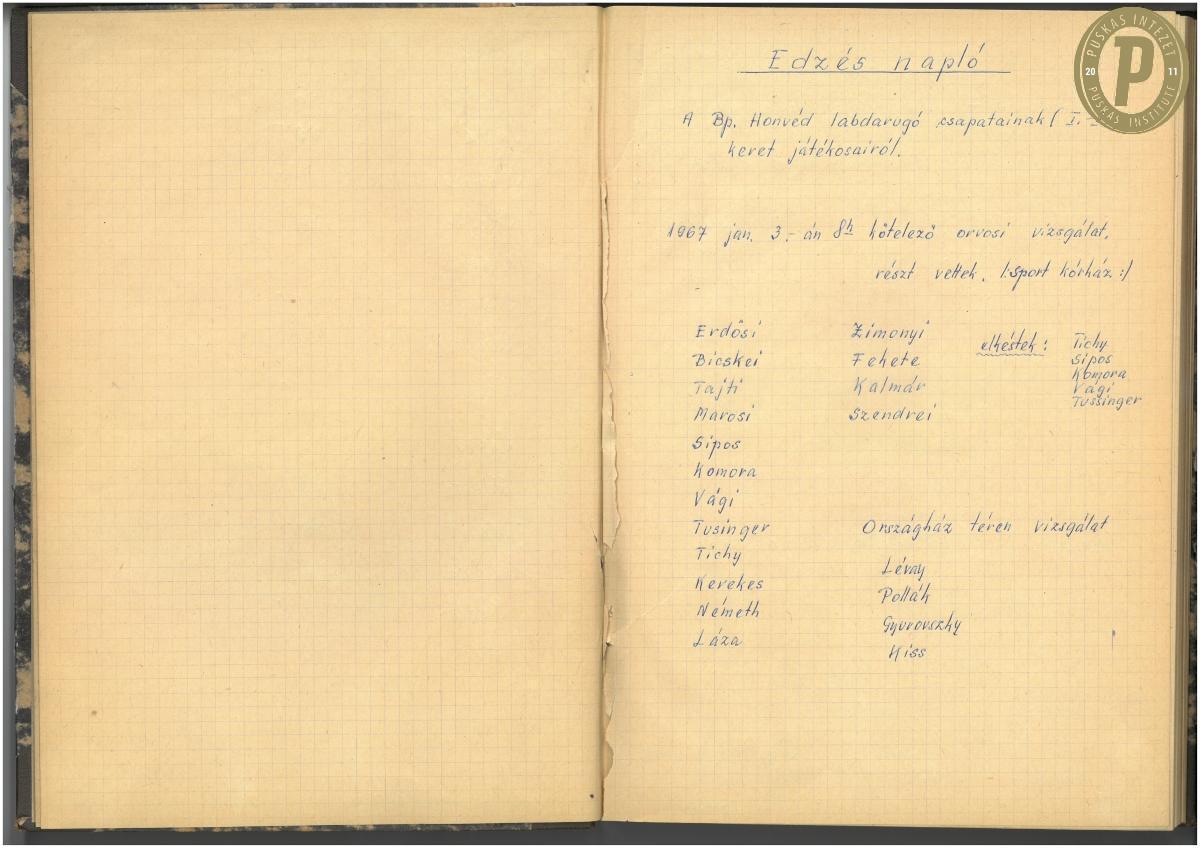 Edzés napló
A Bp. Honvéd labdarugó csapatainak ( I.
keret játékosairól.
1967 jan. 3.-án 8h kötelező orvosi vizsgálat.
részt vettek. /:sport kórház:/
Erdősi
Bicskei
Tajti
Marosi
Sipos
Komora
Vági
Tusinger
Tichy
Kerekes
Németh
Láza
Zimonyi
Fehete
Kalmár
Szendrei
elkéstek:
Tichy
Sipos
Komora
Vági
Tussinger
Országház téren vizsgálat
Lévay
Pollák
Gyurovszky
Kiss
PUSKÁS INTÉZET
20 P 11
PUSKAS INSTITUTE